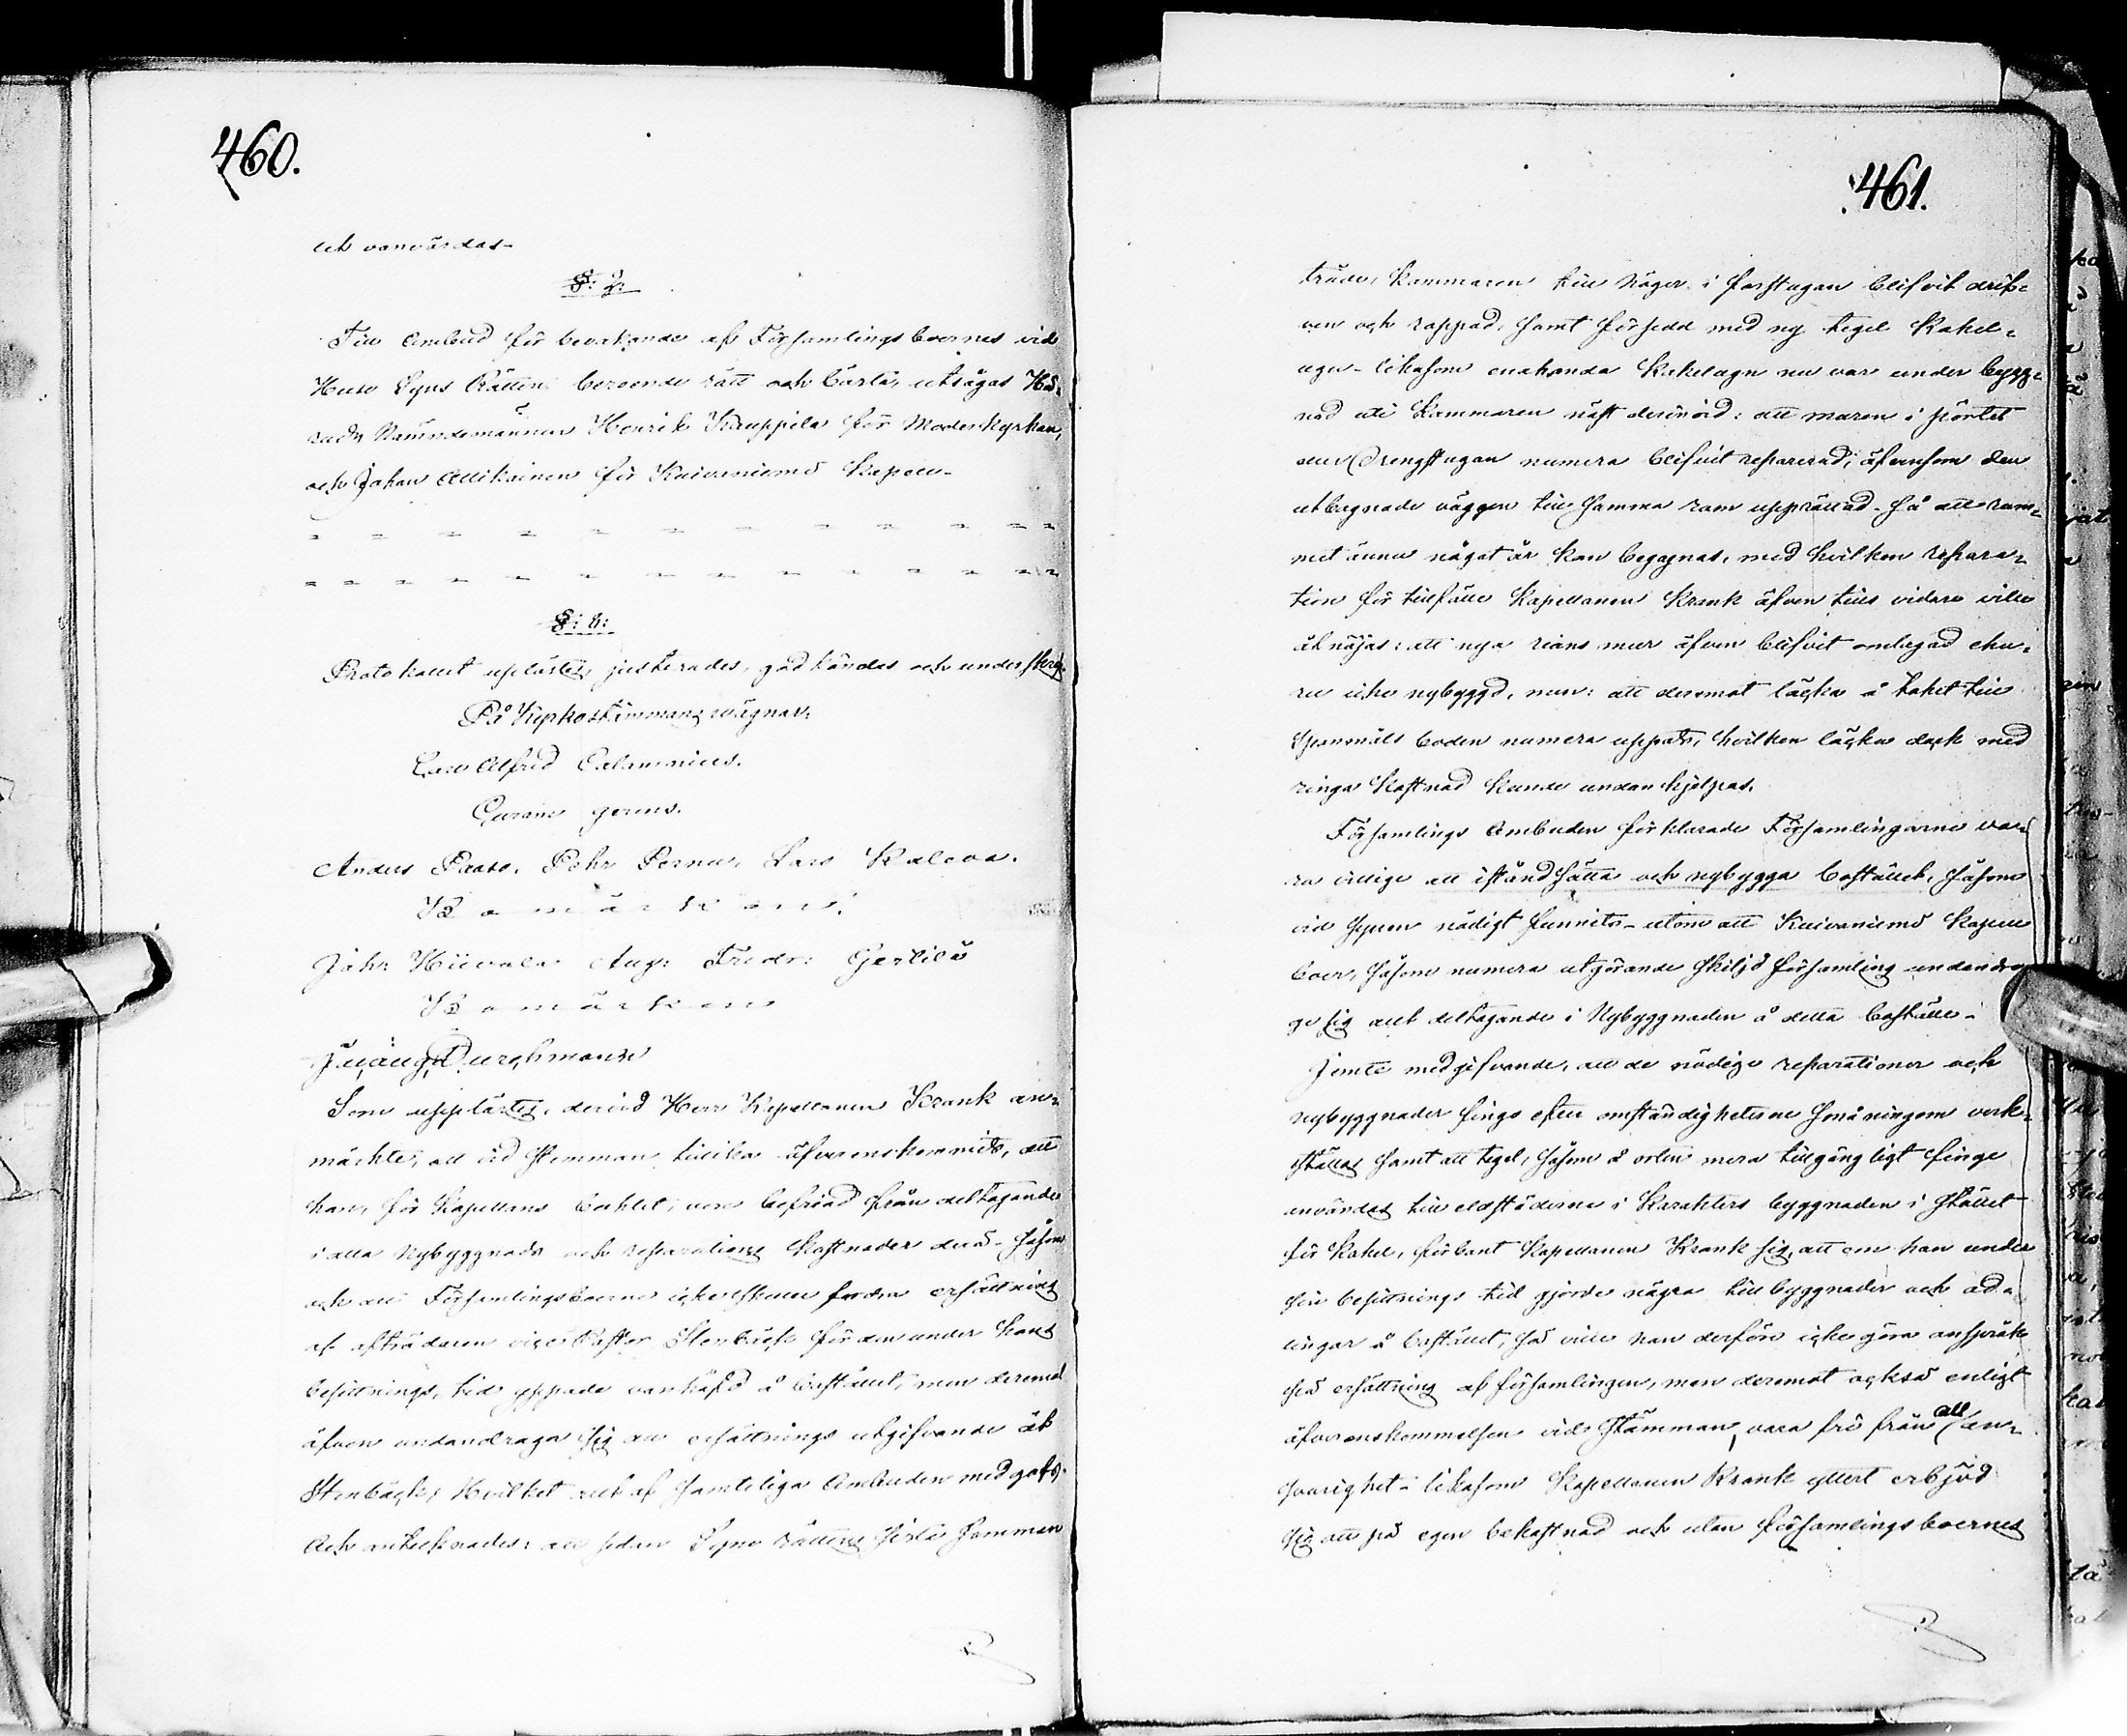 460.
och vanvårdas.
§: 2:
Till Ombud för bevakande af Församlingsboernes vid
Huse Syns Rätten beroende rätt och bästa, utsågos Hä-
rads Nämndemannen Henrik Kauppila för Moderkyrkan,
och Johan Allikainen för Kuivaniemi Kapell.
= = = = = = = = = = = =
= = = = = = = = = = = =
§: 6:
Protokollet uplästes, justerades, godkändes och underskrefs.
På Kyrkostämmans wägnar:
Lars Alfred Calamnius.
Curam gerens.
Anders Paaso, Pehr Pernu, Lars Kaleva.
Bomärken.
Joh: Hiivala Aug: Fredr: Gerlilä
Bomärken
Burghman
Som upplästes, dervid Herr Kapellanen Krank an-
märkte, att vid stemman tillika öfverenskommits, att
han, för Kapellans bohlet, vore befriad från deltagande
i alla Nybyggnads och reparations kostnader derå. Såsom
och att Församlingsboerne icke skulle fordra ersättning
af afträdaren vice Pastor Stenbäck för den under hans
besittnings tid yppade vanhäfd å bostället, men deremot
äfven undandraga sig all ersättnings utgifvande åt
Stenbäck, Hvilket allt af samteliga Ombuden medgafs.
Och antecknades: att sedan Syne rättens sista samman
461.
träde, Kammaren till höger i farstugan blifvit drif-
ven och rappad, samt försedd med ny tegel Kakel-
ugn, likasom enahanda Kakelugn nu var under bygg-
nad uti Kammaren näst dervid: att muren i pörtet
eller Drengstugan numera blifvit reparerad, äfvensom den
utbugnade väggen till samma rum upprättad, så att rum-
met ännu något år kan begagnas, med hvilken repara-
tion för tillfälle Kapellanen Krank äfven tills vidare ville
åtnöjas: att nya rians mur äfven blifvit omlagad ehu-
ru icke nybyggd, men: att deremot läcka å taket till
Spanmåls boden numera yppats, hvilken läcka dock med
ringa kostnad kunde undanhjelpas.
Församlings Ombuden förklarade Församlingarne va-
ra villige att iståndsätta och nybygga bostället, såsom
vid synen nödigt funnits, utom att Kuivaniemi Kapell
boer, såsom numera utgörande skiljd församling undandro-
ge sig allt deltagande i Nybyggnaden å detta boställe.
Jemte medgifvande, att de nödige reparationer och
nybyggnader finge efter omständigheterne småningom verk-
ställas samt att tegel, såsom å orten mera tillgängligt finge
användas till eldstäderne i Karakters byggnaden i stället
för Kakel, förbant Kapellanen Krank sig, att om han under
sin besittnings tid gjorde några till byggnader och od-
lingar å bostället, så ville han derföre icke göra anspråk
på ersättning af församlingen, men deremot också enligt
öfverenskommelsen vid Stämman, vara fri från all an-
svarighet, likasom Kapellanen Krank yttert erbjöd
sig att på egen bekostnad och utan församlingsboernes